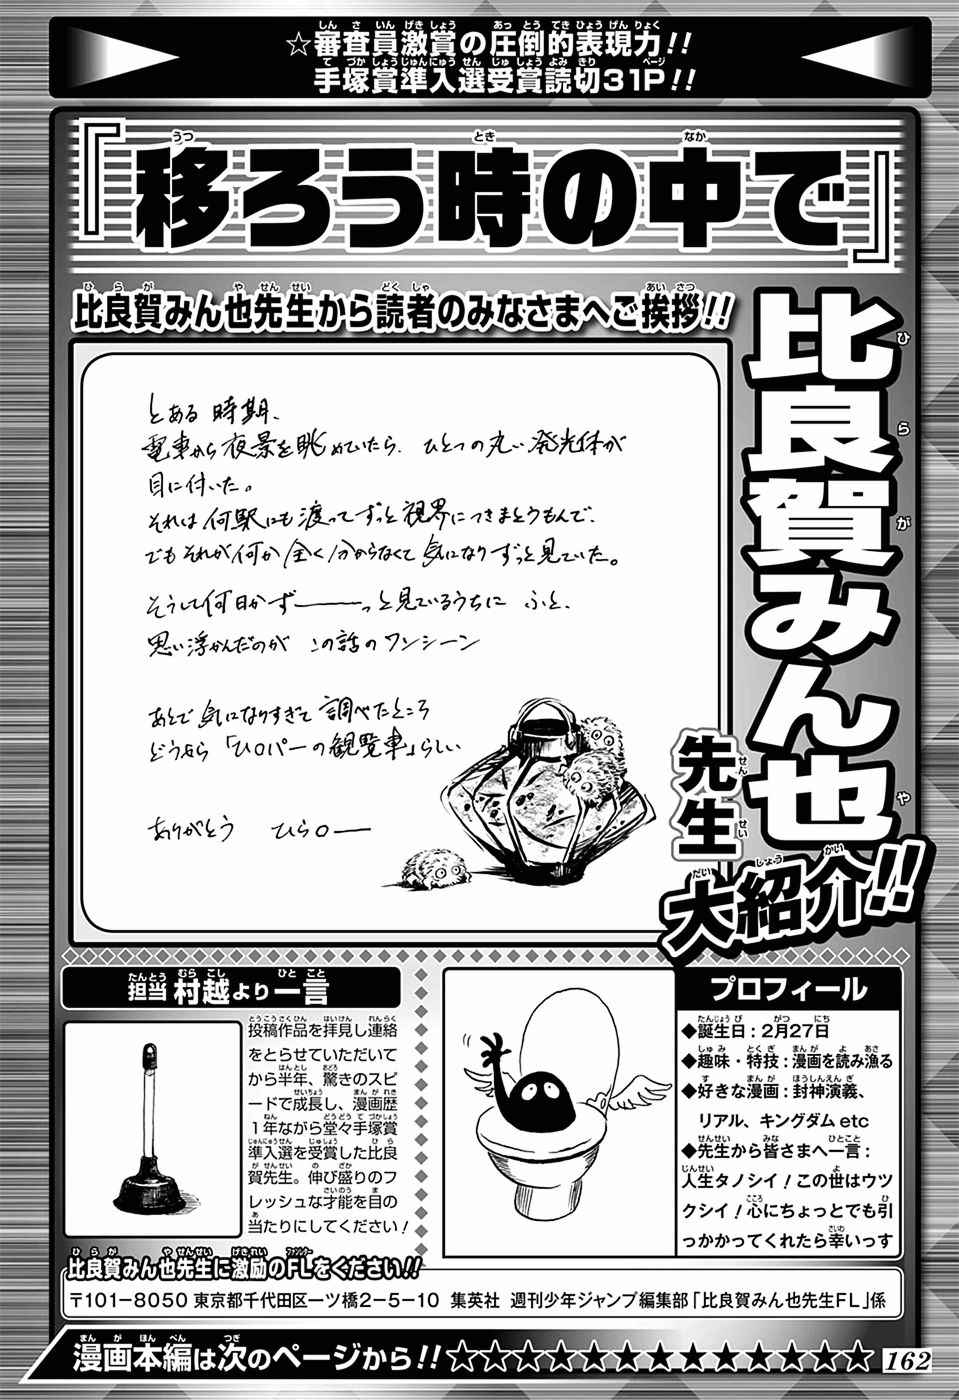 ☆審査員激賞の圧倒的表現力!!
手塚賞準入選受賞読切31P!!
『移ろう時の中で』
比良賀みん也先生から読者のみなさまへご挨拶!!
とある時期、
電車から夜景を眺めていたら、ひとつの丸い発光体が
目に付いた。
それは何駅にも渡ってずっと視界につきまとうもんで、
でもそれが何か全く分からなくて気になりずっと見ていた。
そうして何日かずーーーっと見ているうちに ふと、
思い浮かんだのが この話のワンシーン
あとで気になりすぎて調べたところ
どうやら「ひ〇パーの観覧車」らしい
ありがとう ひら〇ー
比良賀みん也
先生
大紹介!!
担当 村越より一言
投稿作品を拝見し連絡
をとらせていただいて
から半年、驚きのスピ
ードで成長し、漫画歴
1年ながら堂々手塚賞
準入選を受賞した比良
賀先生。伸び盛りのフ
レッシュな才能を目の
当たりにしてください!
プロフィール
◆誕生日:2月27日
◆趣味・特技:漫画を読み漁る
◆好きな漫画:封神演義、
リアル、キングダム etc
◆先生から皆さまへ一言:
人生タノシイ!この世はウツ
クシイ!心にちょっとでも引
っかかってくれたら幸いっす
比良賀みん也先生に激励のFLをください!!
〒101-8050 東京都千代田区一ツ橋2-5-10 集英社 週刊少年ジャンプ編集部「比良賀みん也先生FL」係
漫画本編は次のページから!!☆☆☆☆☆☆☆☆☆☆☆☆☆☆
162